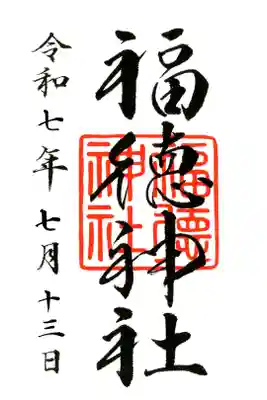 福徳神社
福德
神社
令和七年 七月十三日